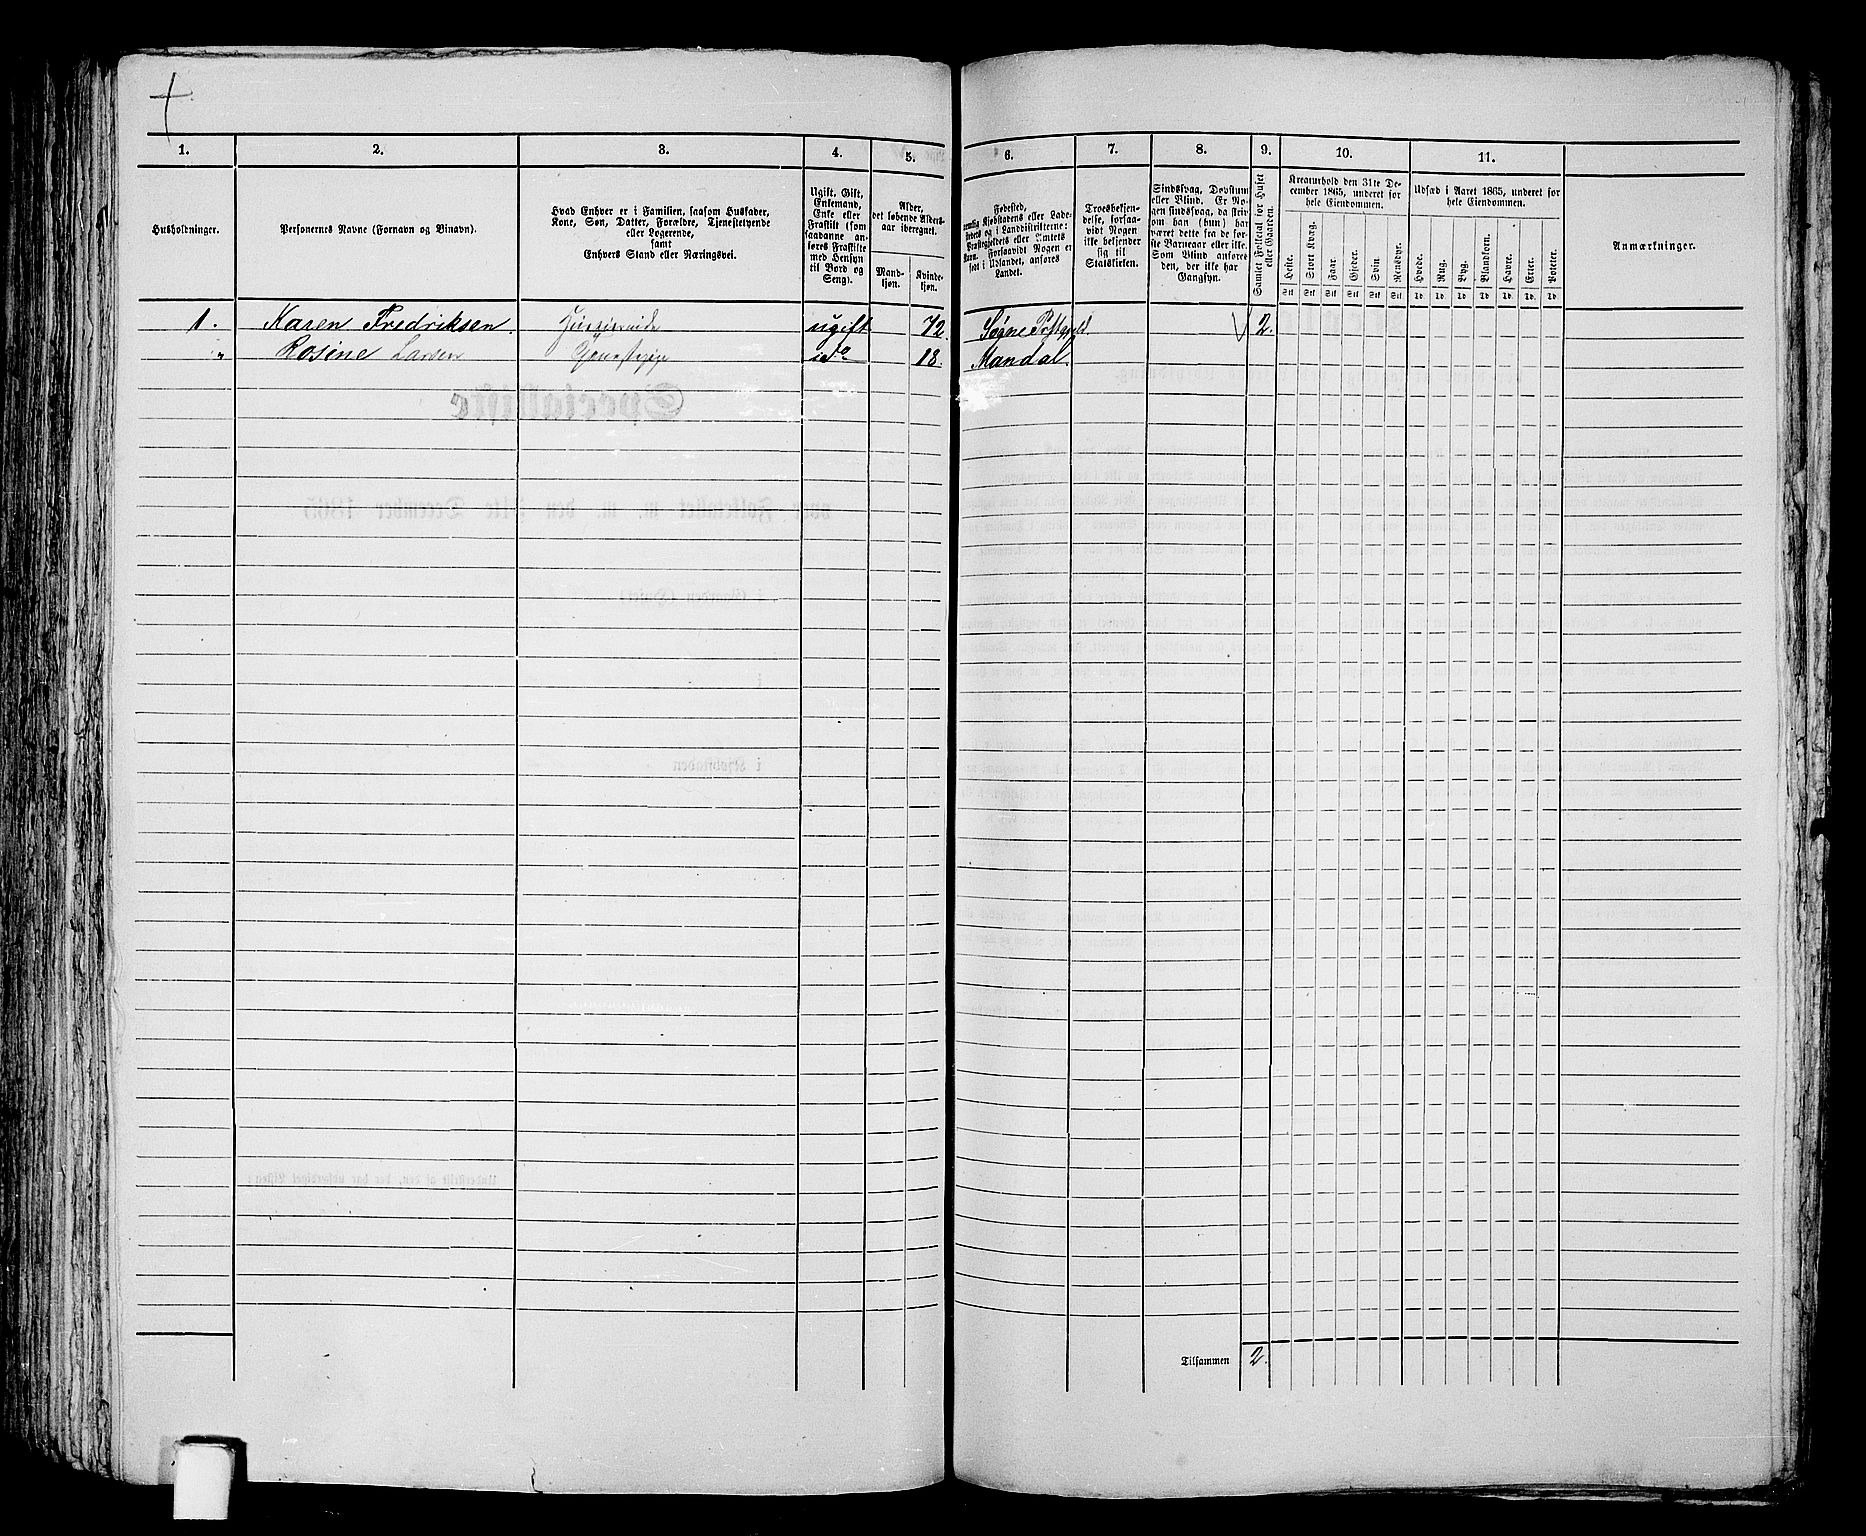 1. 2. 3. 4. 5. 6. 7. 8. 9. 10. 11.
Husholdninger.
Personernes Navne (Fornavn og Binavn).
Hvad Enhver er i Familien, saasom Husfader,
Kone, Søn, Datter, Forældre, Tjenestetyende
eller Logerende,
samt
Enhvers Stand eller Næringsvei.
Ugift, Gift,
Enkemand,
Enke eller
Fraskilt (som
saadanne an-
føres Fraskilte
med Hensyn
til Bord og
Seng).
Alder,
det løbende Alders-
aar iberegnet.
Mand-
kjøn.
Kvinde-
kjøn.
Fødested,
nemlig Kjøbstadens eller Lade-
stedets og i Landdistrikterne:
Præstegjeldets eller Amtets
Navn. Forsaavidt Nogen er
født i Udlandet, anføres
Landet.
Troesbekjen-
delse, forsaa-
vidt Nogen
ikke bekjender
sig til
Statskirken.
Sindssvag, Døvstum
eller Blind. Er No-
gen sindssvag, da skriv
om han (hun) har
været dette fra de før-
ste Barneaar eller ikke.
Som Blind anføres
den, der ikke har
Gangsyn.
Samlet Folketal for Huset
eller Gaarden.
Kreaturhold den 31te De-
cember 1865, underet for
hele Eiendommen.
Heste. Stort Kvæg. Faar. Gjeder. Svin. Rensdyr.
Stk Stk Stk Stk Stk Stk
Udsæd i Aaret 1865, underet for
hele Eiendommen.
Hvede. Rug. Byg. Blandkorn. Havre. Erter. Poteter.
Td Td Td Td Td Td Td
Anmærkninger.
1. Karen Fredriksen. ugift 72. Søgne 2.
" Rosine Larsen do 18. Mandal.
Tilsammen 2.